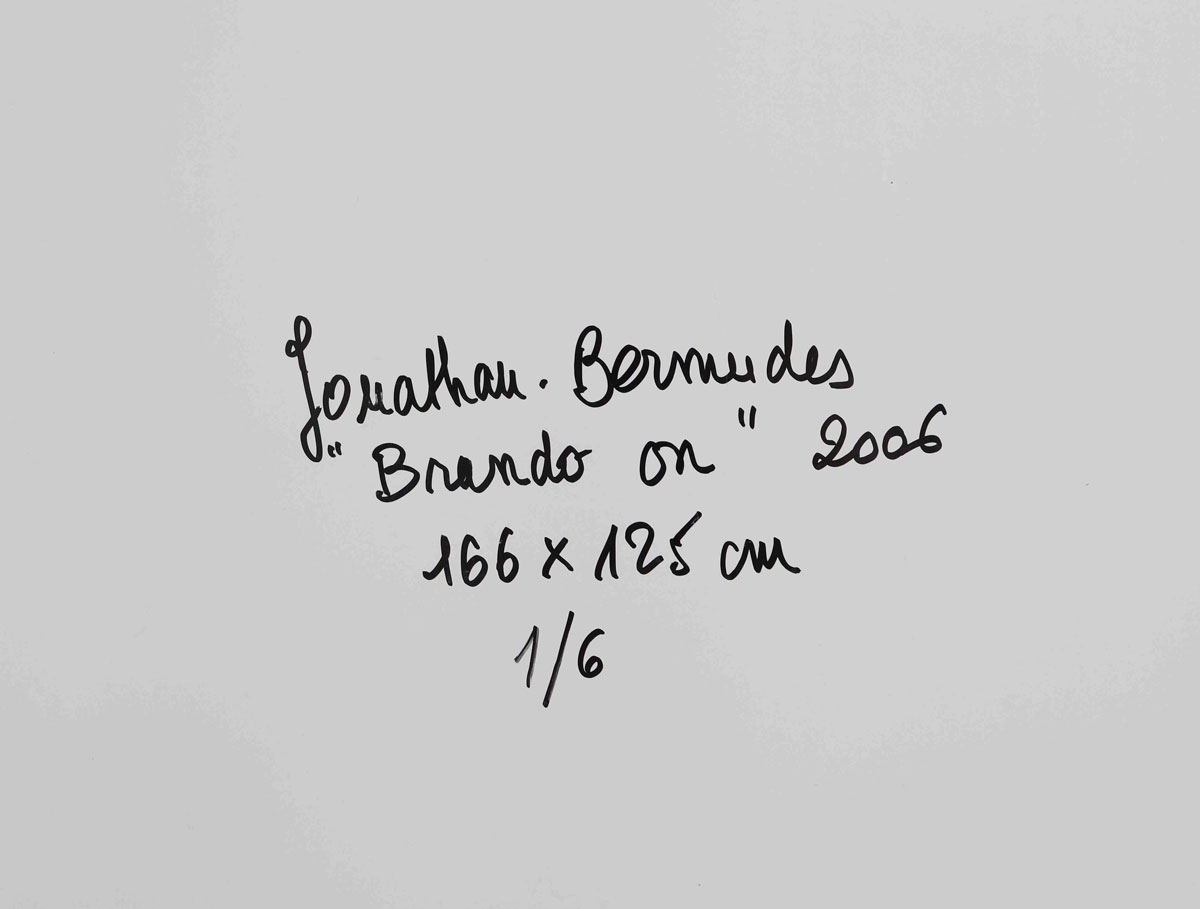 Jonathan. Bermudes
"Brando on" 2006
166 x 125 cm
1/6